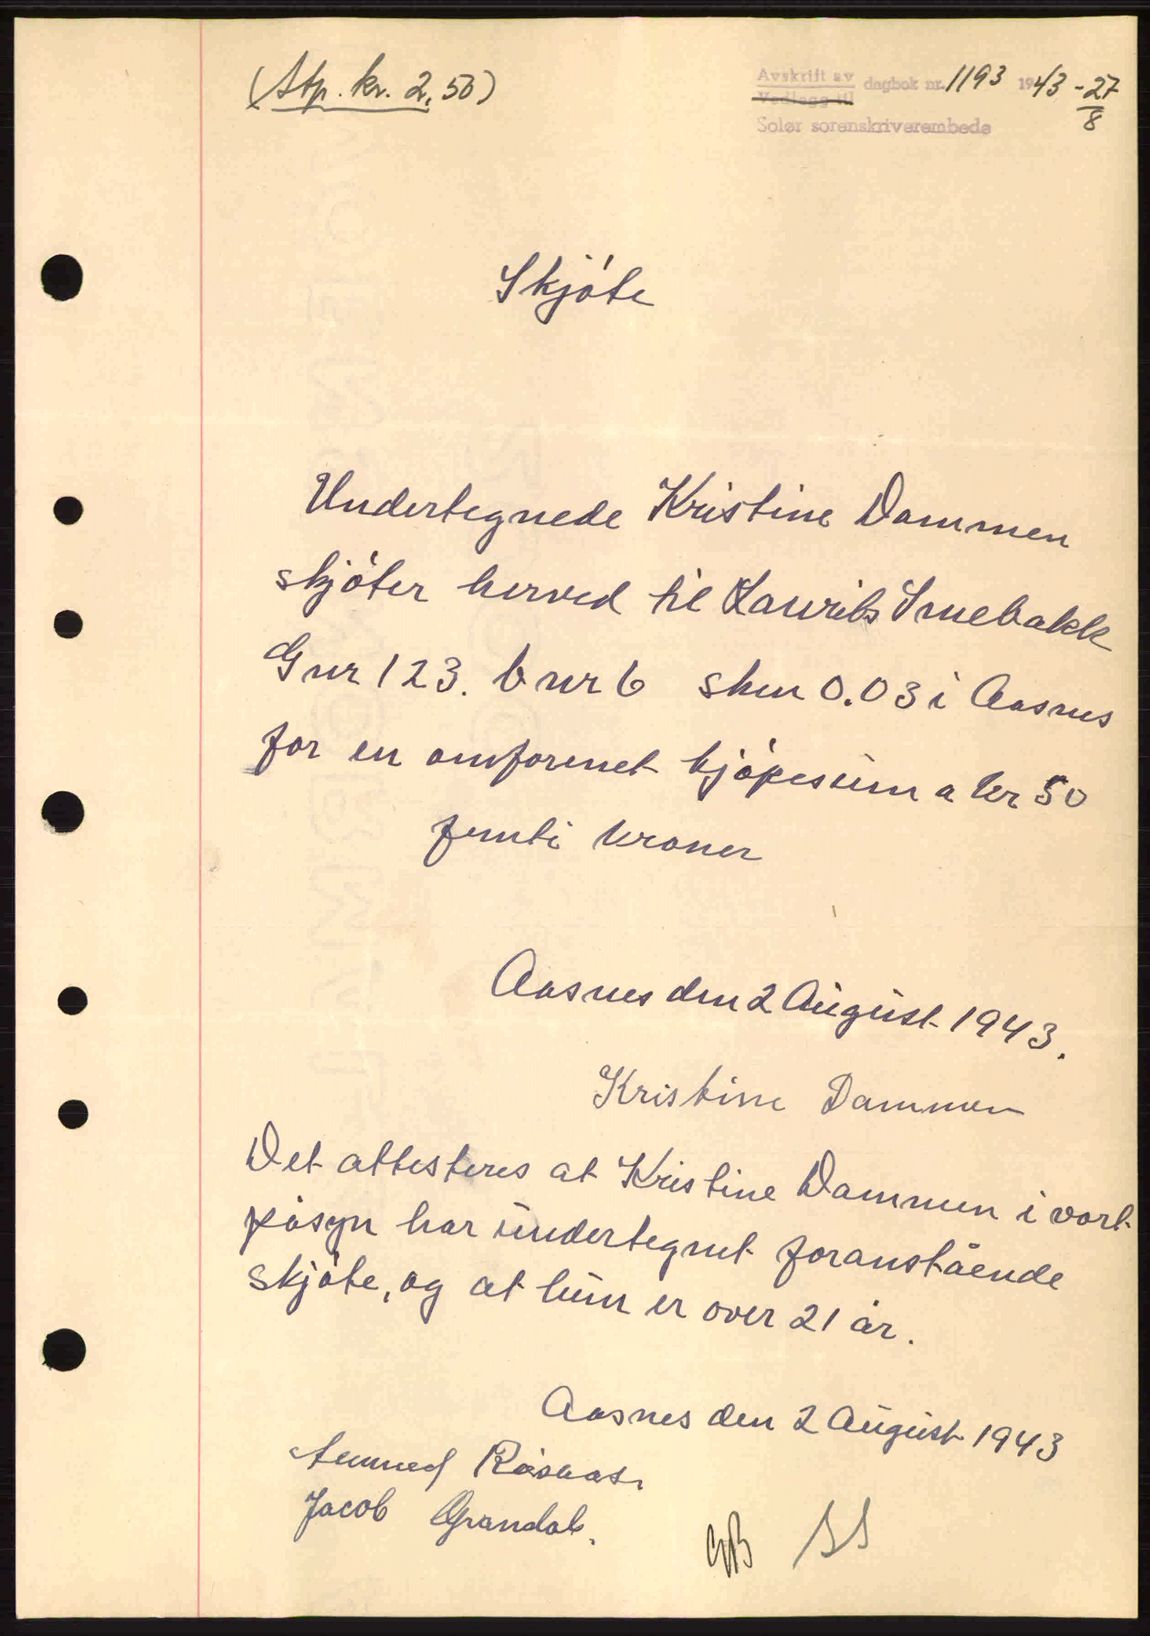 (Stp. kr. 2,50)
Avskrift av
Vedlegg til
dagbok nr. 1193 1943 - 27/8
Solør sorenskriverembede
Skjóte
Undertegnede Kristine Dammen
skjóter herved til Laurits Snebakk
Gnr 123. bnr 6 skm 0.03 i Aasnes
for en omforenet kjópesum a kr 50
femti kroner
Aasnes den 2 August 1943.
Kristine Dammen
Det attesteres at Kristine Dammen i vort
påsyn har undertegnet foranstående
skjóte, og at hun er over 21 år.
Aasnes den 2 August 1943
Jacob Grandal.